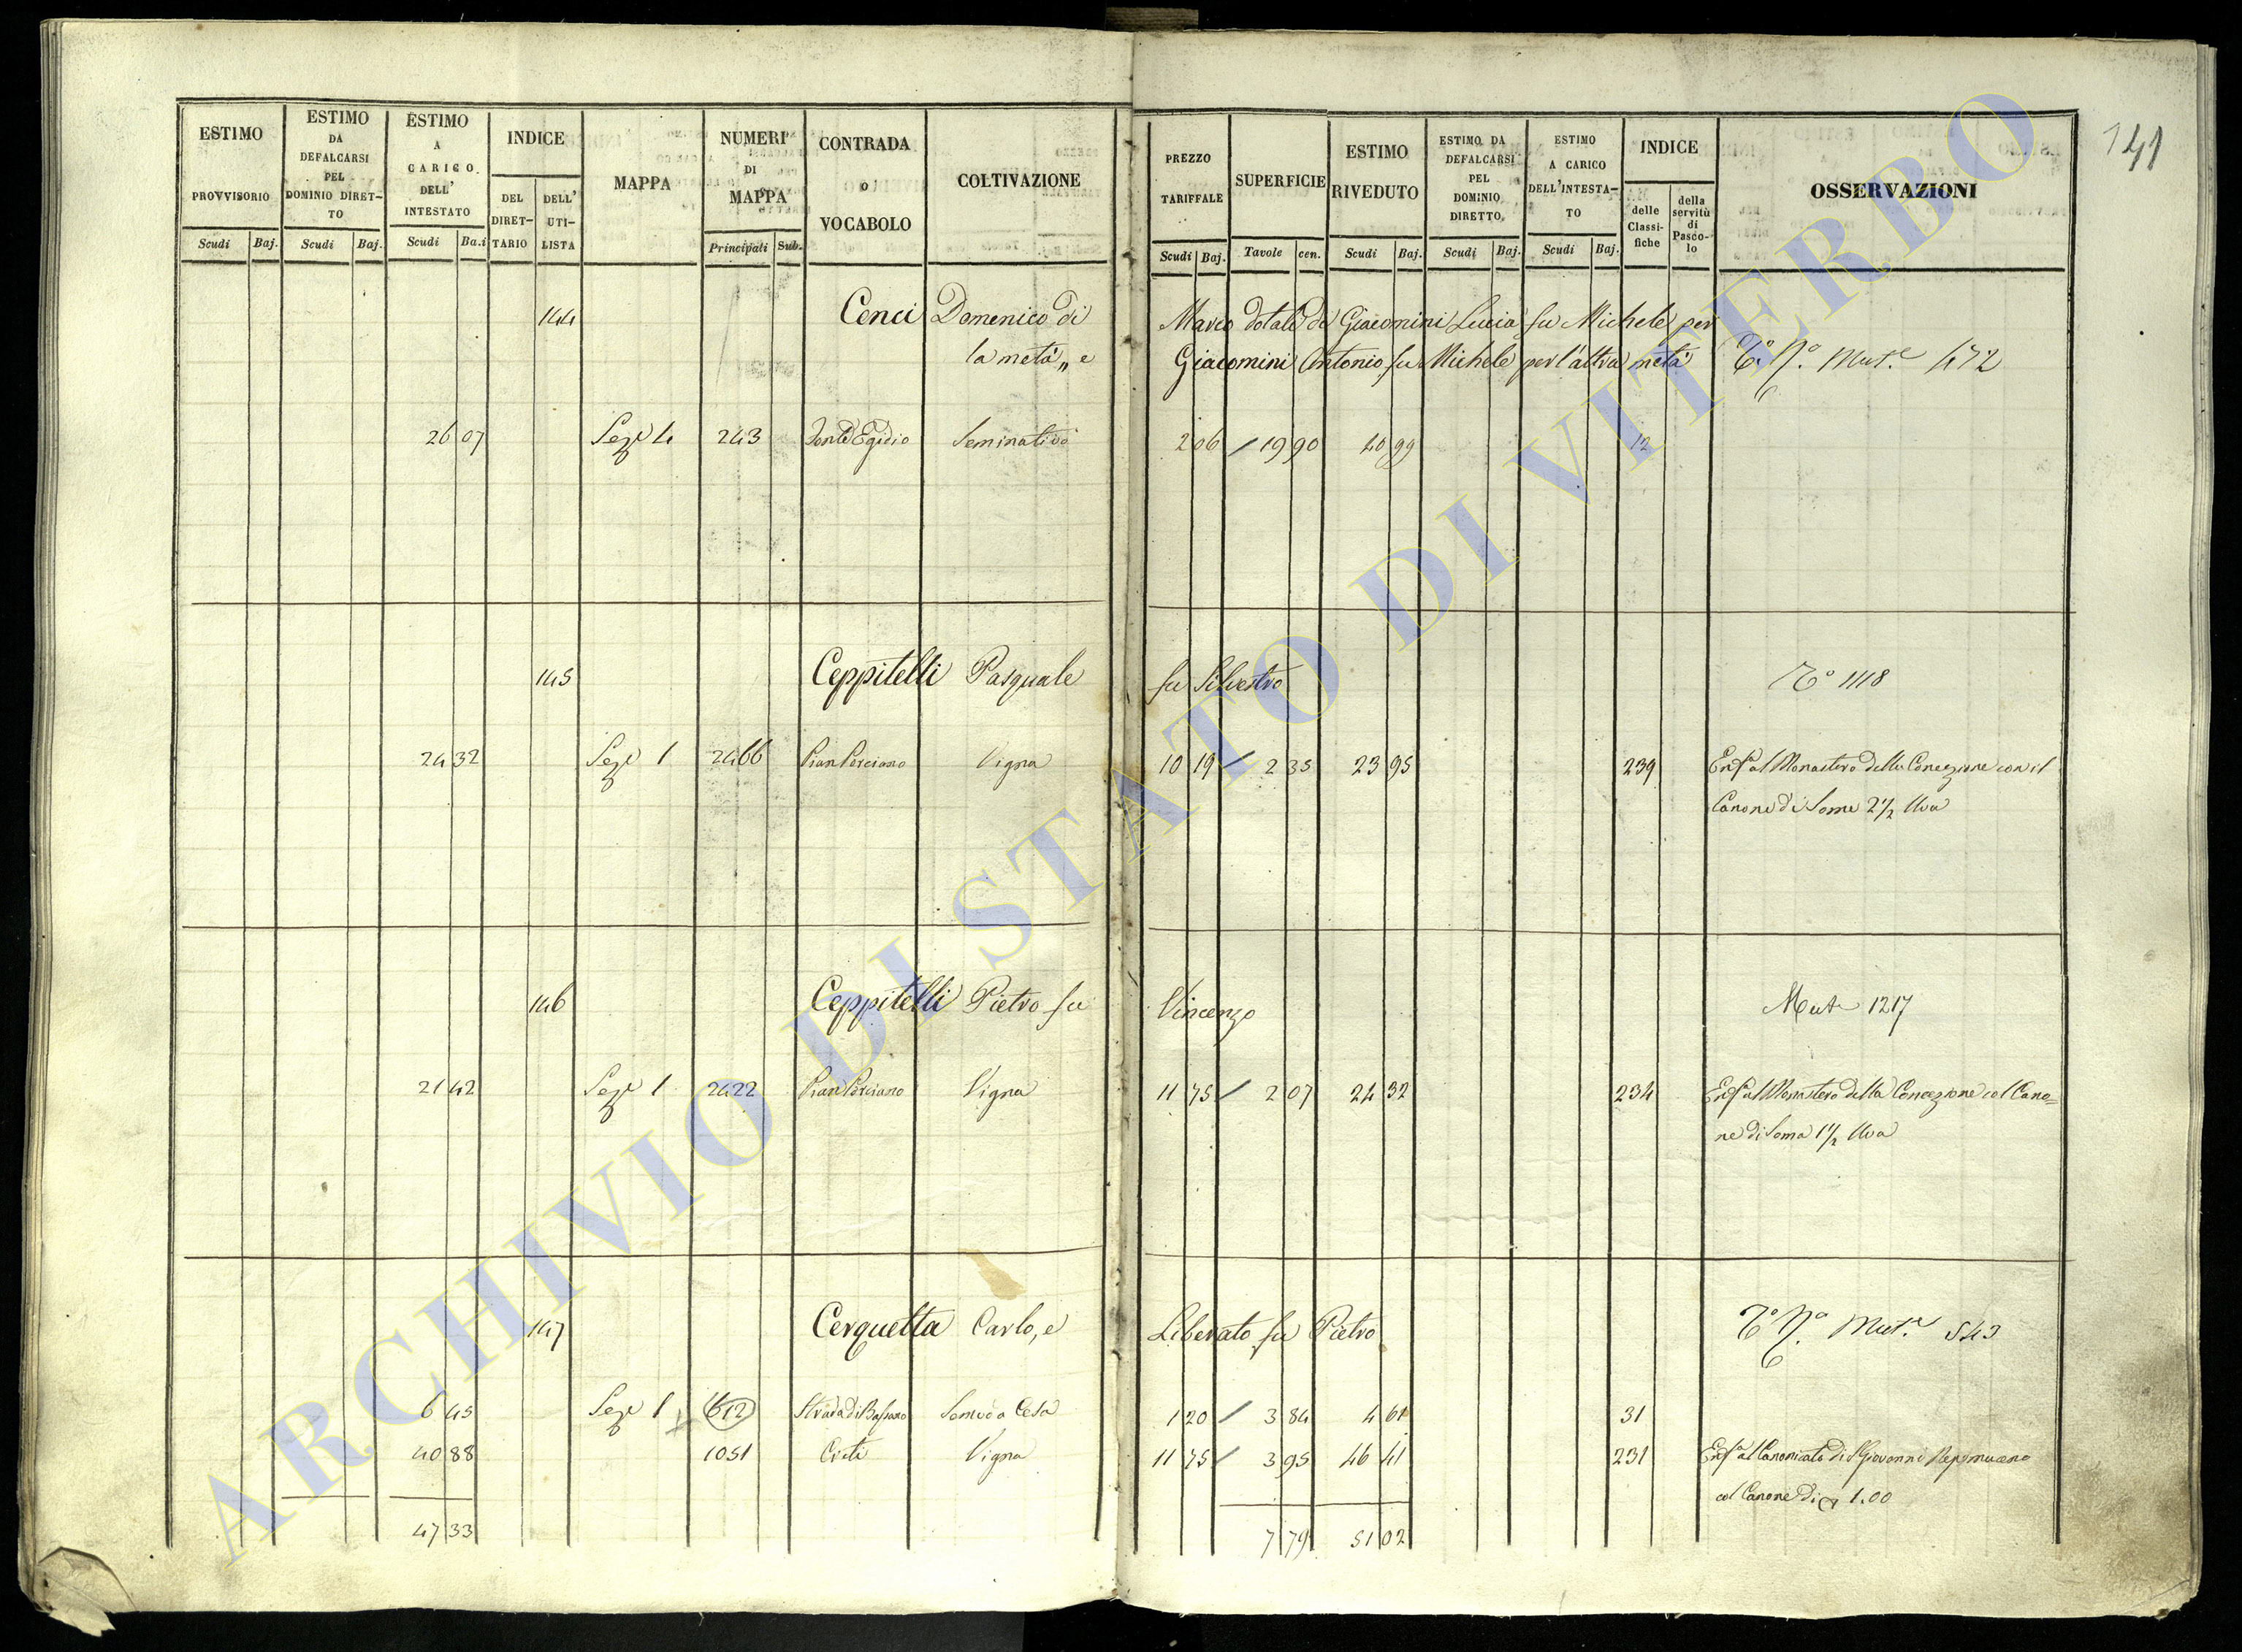 141
ESTIMO PROVVISORIO Scudi Baj.
ESTIMO DA DEFALCARSI PEL DOMINIO DIRET-TO Scudi Baj.
ESTIMO A CARICO DELL' INTESTATO Scudi Ba.i
INDICE DEL DIRET-TARIO DELL' UTI-LISTA
MAPPA
NUMERI DI MAPPA Principali Sub.
CONTRADA O VOCABOLO
COLTIVAZIONE
PREZZO TARIFFALE Scudi Baj.
SUPERFICIE Tavole cen.
ESTIMO RIVEDUTO Scudi Baj.
ESTIMO DA DEFALCARSI PEL DOMINIO DIRETTO Scudi Baj.
ESTIMO A CARICO DELL'INTESTA-TO Scudi Baj.
INDICE delle Classi-fiche della servitù di Pasco-lo
OSSERVAZIONI
144 Cenci Domenico di Marco dotale di Giacomini Lucia fu Michele per
la metà,, e Giacomini Antonio fu Michele per l'altra metà Mut.e 472
26 07 Sez.e 4 243 Seminativo 2 06 / 19 90 40 99 12
145 Ceppitelli Pasquale fu Silvestro T.o 1118
24 32 Sez.e 1 2466 Pian Porciano Vigna 10 19 / 2 35 23 95 239 Enf.a al Monastero della Concezione con il
Canone di Some 2 1/2 Uva
146 Ceppitelli Pietro fu Vincenzo Mut.e 1217
21 42 Sez.e 1 2422 Pian Porciano Vigna 11 75 / 2 07 24 32 234 Enf.a al Monastero della Concezione col Cano=
ne di Soma 1 1/2 Uva
147 Cerquetta Carlo, e Liberato fu Pietro Mut.e 543
6 45 Sez.e 1 612 Strada di Bassano 1 20 / 3 84 4 61 31
40 88 1051 Vigna 11 75 / 3 95 46 41 231 Enf.a al Canonicato di S Giovanni Nepomuceno
col Canone di 1.00
47 33 7 79 51 02
ARCHIVIO DI STATO DI VITERBO